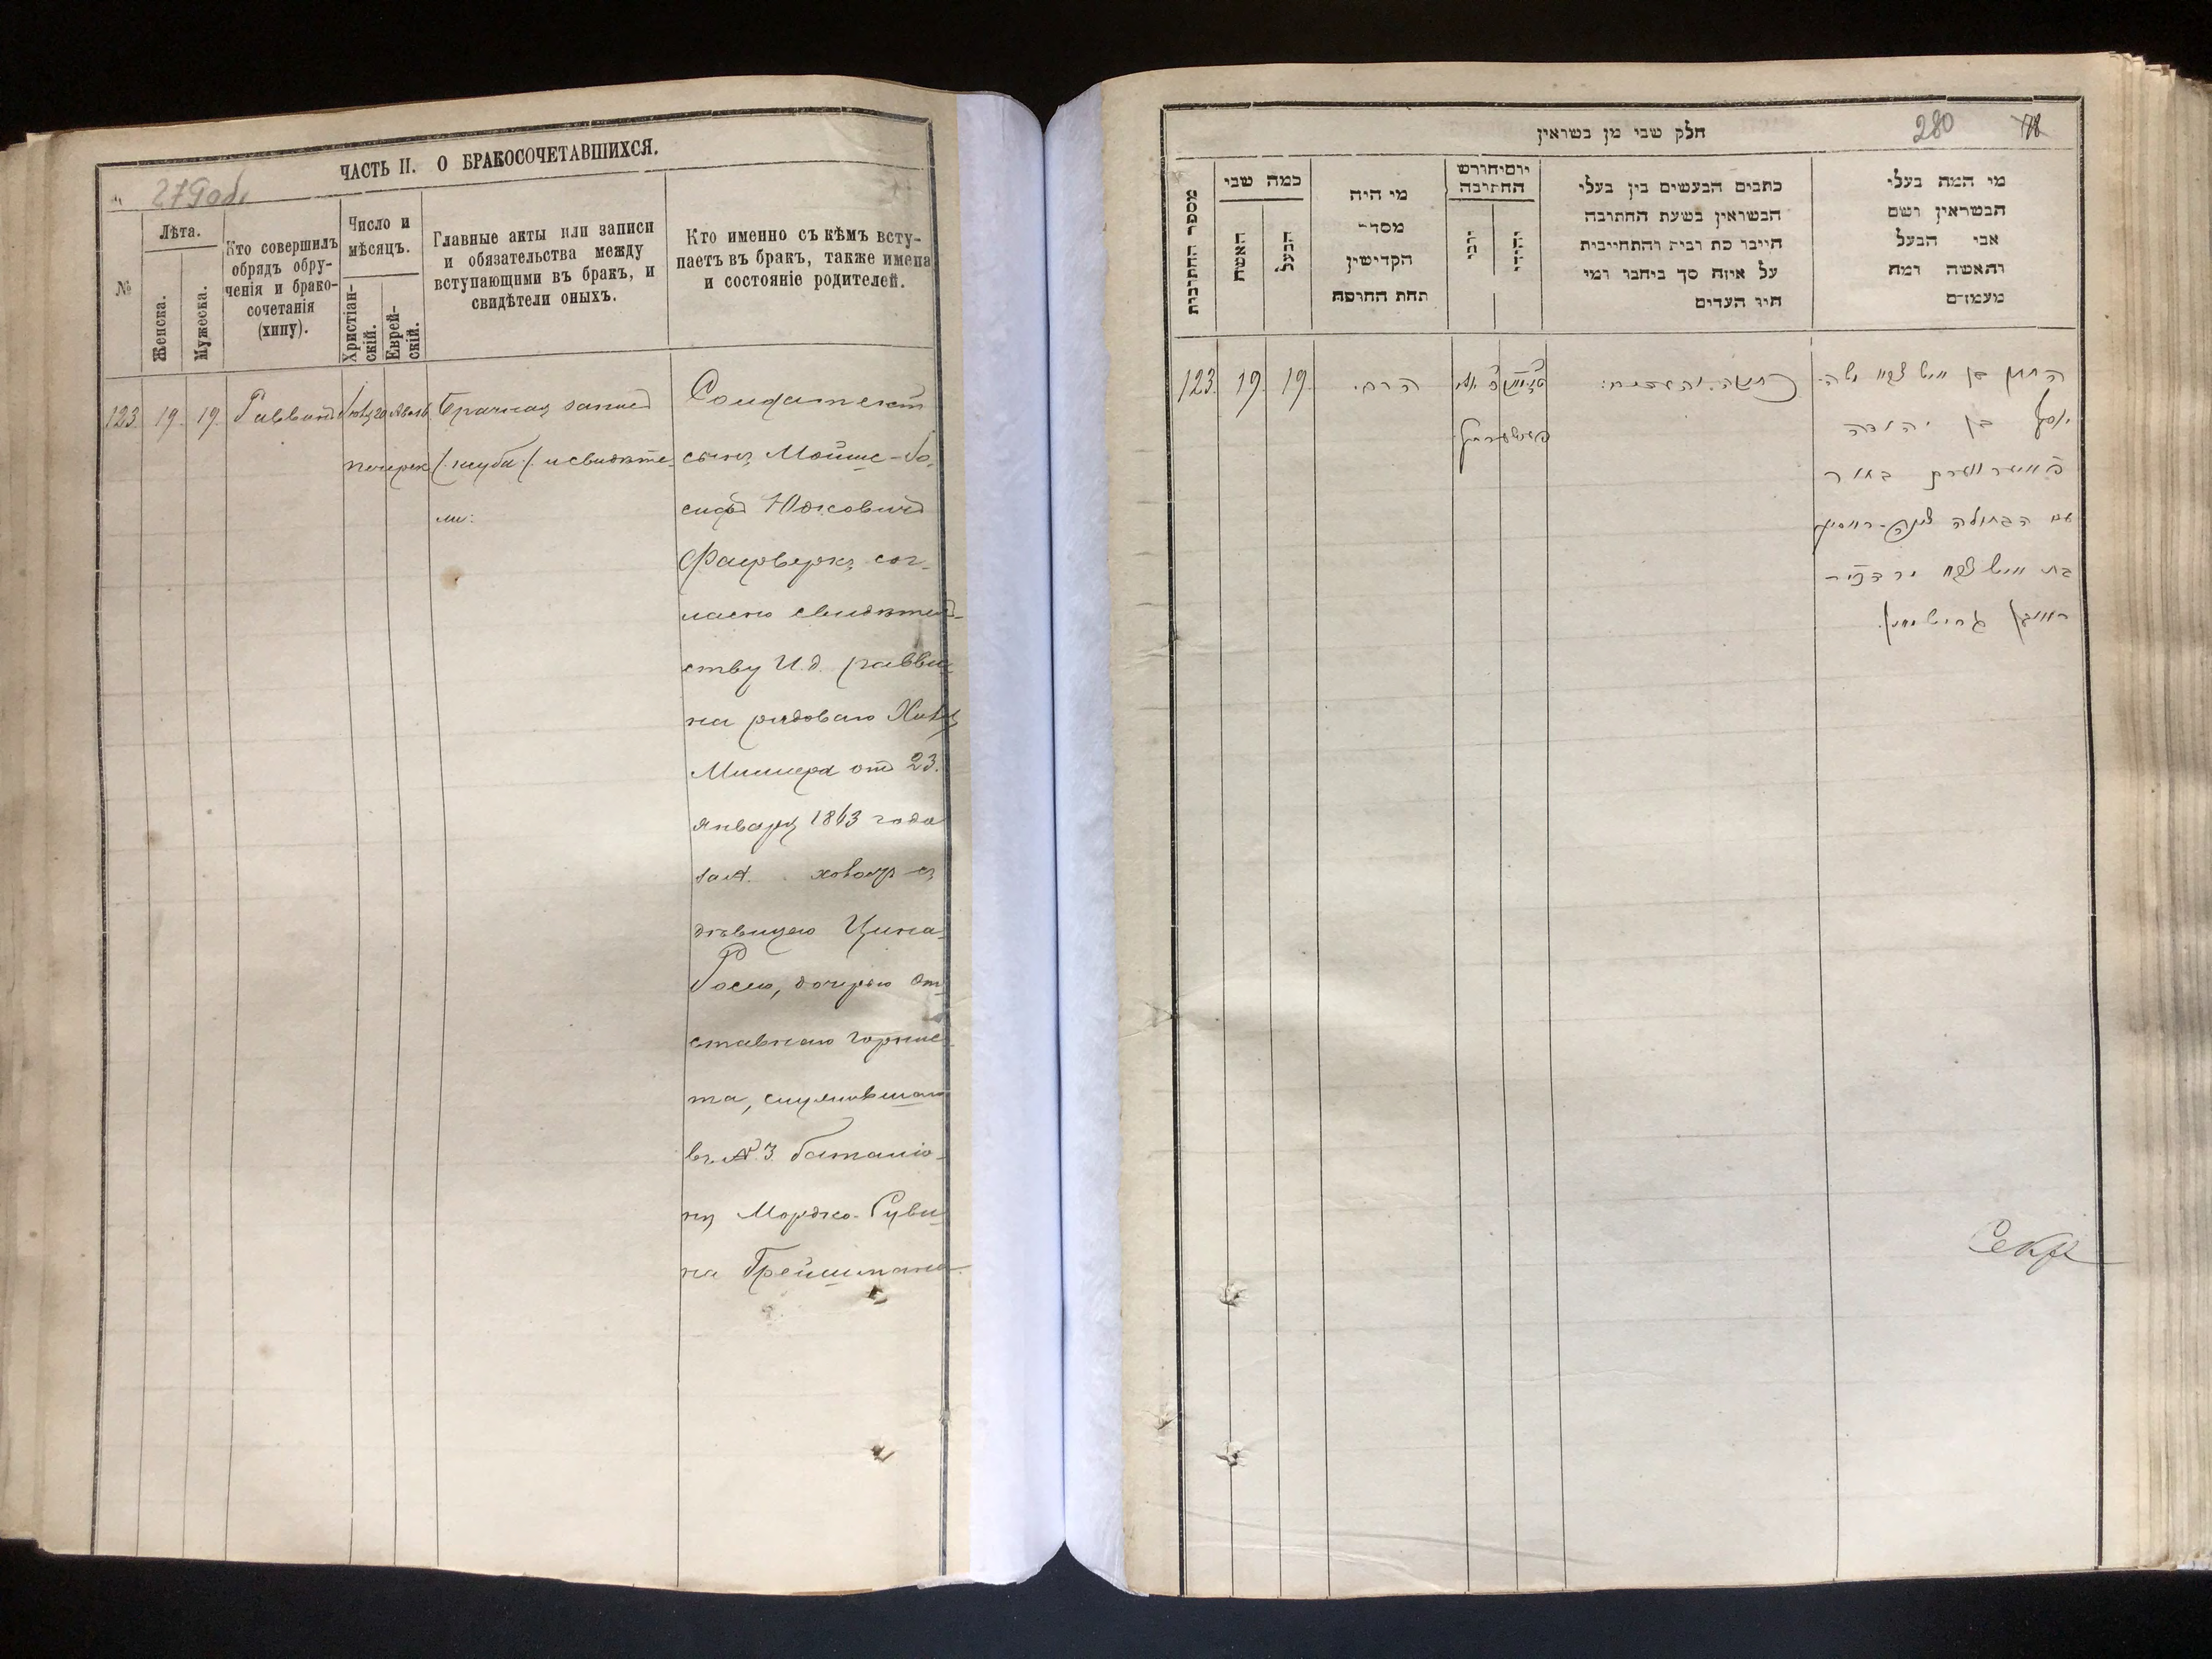 ЧАСТЬ II. О БРАКОСОЧЕТАВШИХСЯ.
279 об.
№
Лѣта.
Женска.
Мужеска.
Кто совершилъ
обрядъ обру-
ченія и брако-
сочетанія
(хипу).
Число и
мѣсяцъ.
Христіан-
скій.
Еврей-
скій.
Главные акты или записи
и обязательства между
вступающими въ бракъ, и
свидѣтели оныхъ.
Кто именно съ кѣмъ всту-
паетъ въ бракъ, также имена
и состояніе родителей.
123. 19. 19. Раввинъ
Брачная запись
и свидѣте-
ли:
Солдатскій
сынъ Мойше-Iо-
сифъ Юдковичъ
Фаерверкъ сог-
ласно свидѣтель-
ству И. д. равви-
на рядоваго
Миллера отъ 23.
января 1863 года
дѣвицею Цина-
Росею, дочерью от-
ставнаго горнис-
та, служившаго
въ № 3 баталіо-
нѣ Мордко-Руви-
на Грейшмана
חלק שני מן נשואין
280
מספר החתונות
כמה שני
האשה
הבעל
מי היה
מסדר
הקדישין
תחת החופה
יום וחודש
החתונה
כתבים הנעשים בין בעלי
הנשואין בשעת החתונה
היינו כת ובית והתחייבות
על איזה סך ביחבו ומי
היו העדים
מי המה בעלי
הנשואין ושם
אבי הבעל
והאשה ומה
מעמדם
123. 19. 19. הרב.
יוסף בן יהודה
פייערווערק בחור
עם הבתולה
ראובן גריישמן.
Секр